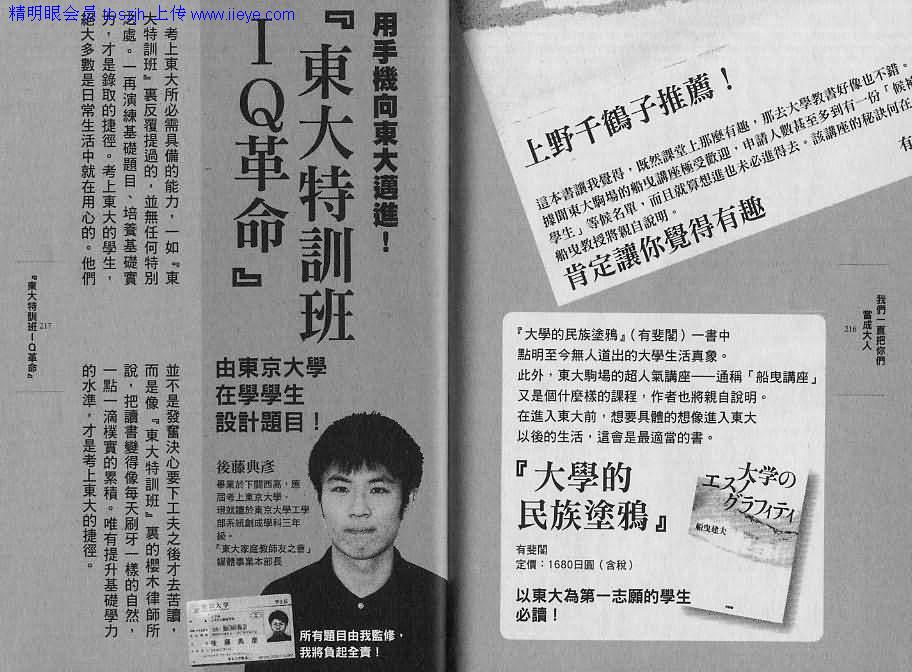 精明眼会员 tbszjh 上传 www.iieye.com
上野千鶴子推薦！
這本書讓我覺得，既然課堂上那麼有趣，那去大學教書好像也不錯。
據聞東大駒場的船曳講座極受歡迎，申請人數甚至多到有一份「候補
學生」等候名單，而且就算想進也未必進得去。該講座的秘訣何在
船曳教授將親自說明。
肯定讓你覺得有趣
『大學的民族塗鴉』（有斐閣）一書中
點明至今無人道出的大學生活真象。
此外，東大駒場的超人氣講座——通稱「船曳講座」
又是個什麼樣的課程，作者也將親自說明。
在進入東大前，想要具體的想像進入東大
以後的生活，這會是最適當的書。
『大學的
民族塗鴉』
有斐閣
定價：1680日圓（含稅）
以東大為第一志願的學生
必讀！
大学の
エスノ
グラフィティ
船曳建夫
我們一直把你們
當成大人
216
用手機向東大邁進！
『東大特訓班
IQ革命』
由東京大學
在學學生
設計題目！
後藤典彥
畢業於下關西高，應
屆考上東京大學。
現就讀於東京大學工學
部系統創成學科三年
級。
「東大家庭教師友之會」
媒體事業本部長
所有題目由我監修，
我將負起全責！
考上東大所必需具備的能力，一如『東
大特訓班』裏反覆提過的，並無任何特別
之處。一再演練基礎題目、培養基礎實
力，才是錄取的捷徑。考上東大的學生，
絕大多數是日常生活中就在用心的。他們
並不是發奮決心要下工夫之後才去苦讀，
而是像『東大特訓班』裏的櫻木律師所
說，把讀書變得像每天刷牙一樣的自然，
一點一滴樸實的累積。唯有提升基礎學力
的水準，才是考上東大的捷徑。
『東大特訓班IQ革命』
217